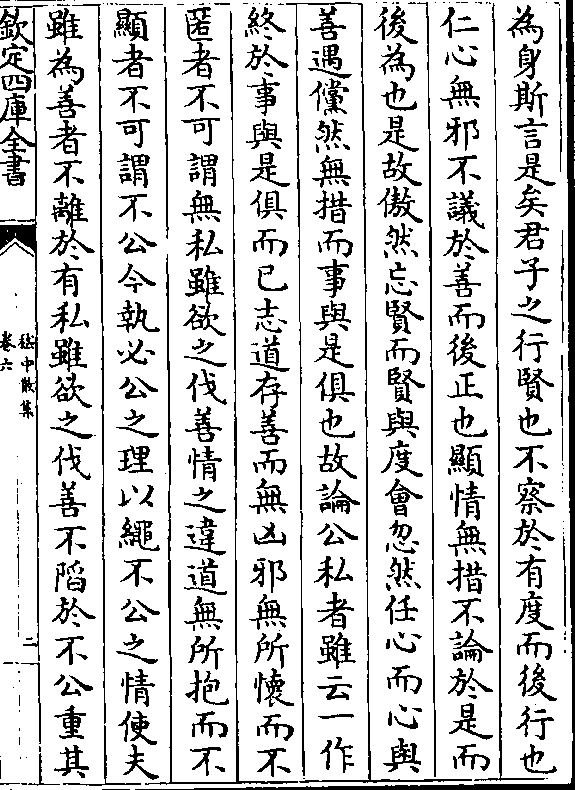 為身斯言是矣君子之行賢也不察於有度而後行也
仁心無邪不議於善而後正也顯情無措不論於是而
後為也是故傲然忘賢而賢與度會忽然任心而心與
善遇儻然無措而事與是俱也故論公私者雖云一作
終於事與是俱而已志道存善而無凶邪無所懷而不
匿者不可謂無私雖欲之伐善情之違道無所抱而不
顯者不可謂不公今執必公之理以繩不公之情使夫
雖為善者不離於有私雖欲之伐善不陷於不公重其
欽定四庫全書
嵇中散集
卷六
二